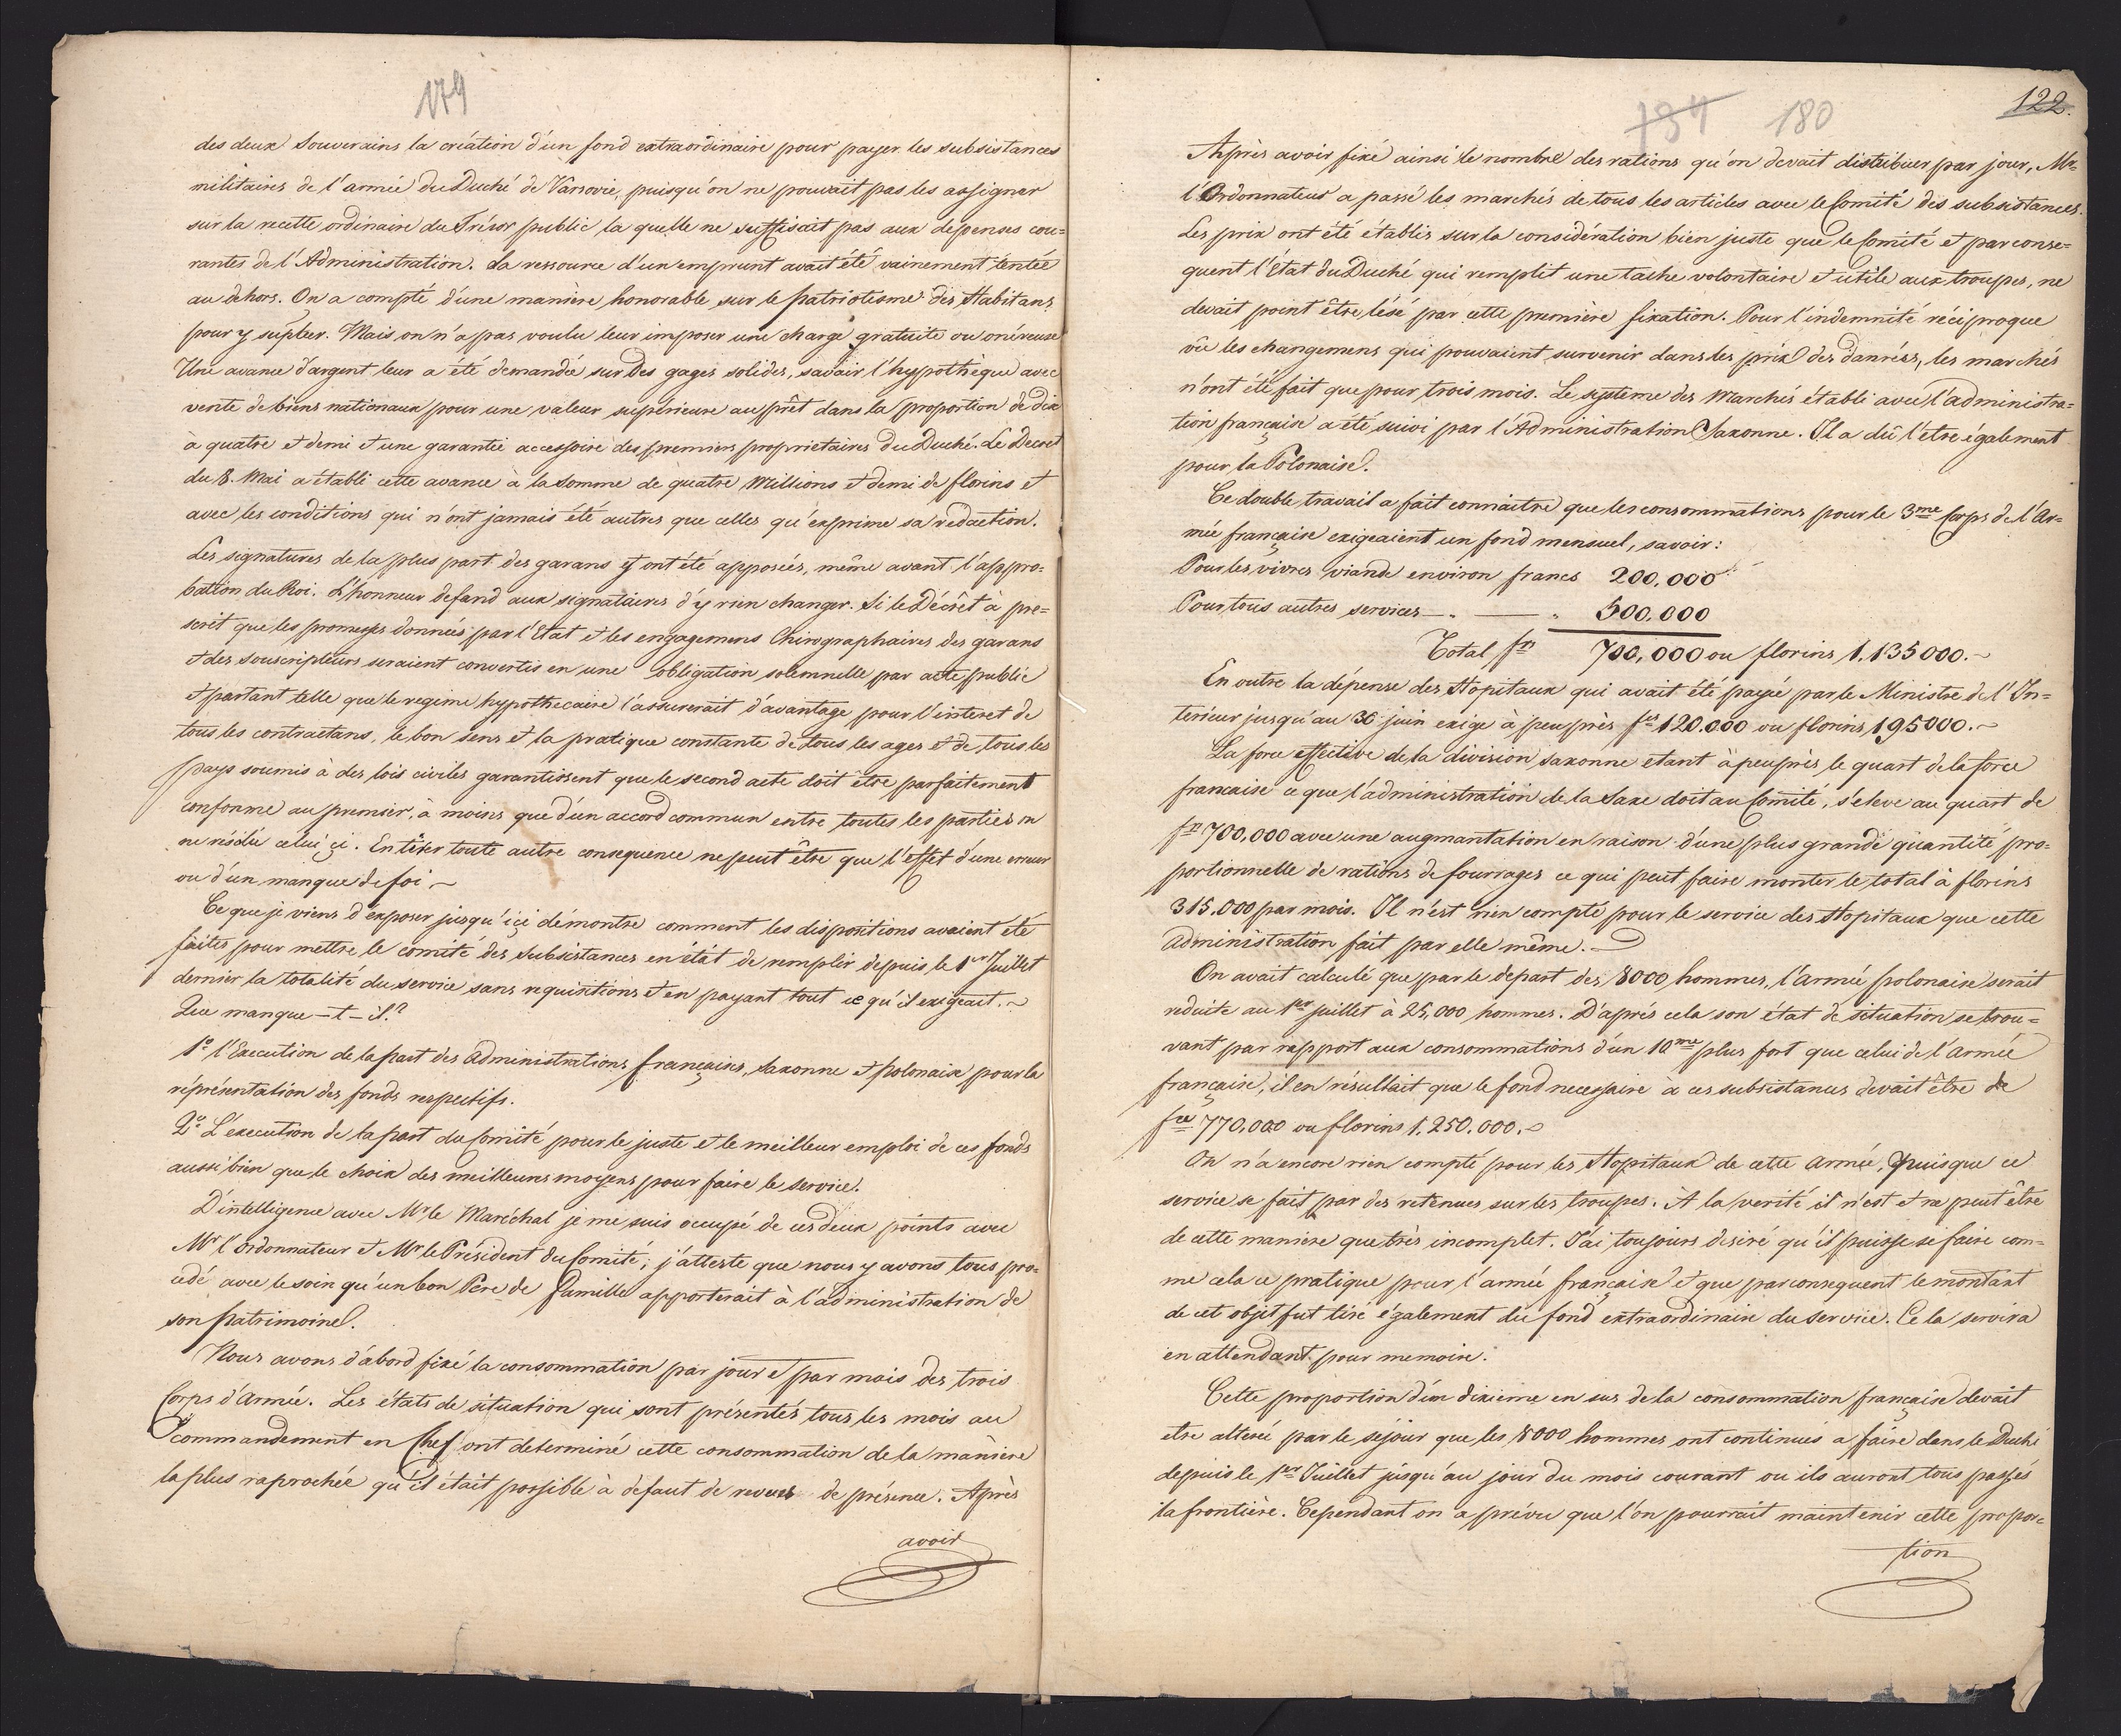 179
des deux Souverains la création d'un fond extraordinaire pour payer les subsistances
militaires de l'armée du Duché de Varsovie, puisqu'on ne pouvait pas les assigner
sur la recette ordinaire du Trésor public la quelle ne suffisait pas aux depenses cou=
rantes de l'Administration. La ressource d'un emprunt avait été vainement tentée
au dehors. On a compté d'une manière honorable sur le patriotisme des Habitans
pour y supléer. Mais on n'a pas voulu leur imposer une charge gratuite ou onéreuse
Une avance d'argent leur a été demandée sur des gages solides, savoir l'hypothèque avec
vente de biens nationaux pour une valeur supérieure au prêt dans la proportion de dix
à quatre et demi et une garantie accessoire des premiers proprietaires du Duché. Le Decret
du 8. Mai a établi cette avance à la Somme de quatre Millions et demi de florins et
avec les conditions qui n'ont jamais été autres que celles qu'exprime sa redaction.
Les signatures de la plus part des garans y ont été apposées, même avant l'appro=
bation du Roi. L'honneur defand aux signataires d'y rien changer. Si le Décrèt à pre=
scrit que les promesses données par l'Etat et les engagemens Chirographaires des garans
et des souscripteurs seraient convertis en une obligation solemnelle par acte public
et partant telle que le regime hypothecaire l'assurerait d'avantage pour l'interet de
tous les contractans, le bon sens et la pratique constante de tous les ages et de tous les
pays soumis à des lois civiles garantissent que le second acte doit être parfaitement
conforme au premier, à moins que d'un accord commun entre toutes les parties on
ne résilie celui çi. En tirer toute autre consequence ne peut être que l'effet d'une erreur
ou d'un manque de foi ~
Ce que je viens d'exposer jusqu'içi démontre comment les dispositions avaient été
faites pour mettre le comité des Subsistances en état de remplir depuis le 1er Juillet
dernier la totalité du service sans requisitions et en payant tout ce qu'il exigeait. ~
Que manque-t-il?
1o l'Execution de la part des administrations françaises, Saxonne et polonaise pour la
réprésentation des fonds respectifs.
2o L'execution de la part du Comité pour le juste et le meilleur emploi de ces fonds
aussi bien que le choix des meilleurs moyens pour faire le service.
D'intelligence avec Mr le Maréchal je me suis occupé de ces deux points avec
Mr l'ordonnateur et Mr le Président du Comité; j'atteste que nous y avons tous pro=
cedé avec le soin qu'un bon Père de Famille apporterait à l'administration de
son patrimoine.
Nous avons d'abord fixé la consommation par jour et par mois des trois
Corps d'Armée. Les états de situation qui sont présentés tous les mois au
Commandement en Chef ont determiné cette consommation de la manière
la plus raprochée qu'il était possible à defaut de revues de présence. Après
avoir
180
122.
Après avoir fixé ainsi le nombre des rations qu'on devait distribuer par jour, Mr
l'Ordonnateur a passé les marchés de tous les articles avec le Comité des subsistances.
Les prix ont été établis sur la considération bien juste que le Comité et par conse=
quent l'État du Duché qui remplit une tache volontaire et utile aux troupes, ne
devait point être lésé par cette première fixation. Pour l'indemnité réciproque
vû les changemens qui pouvaient survenir dans les prix des danrées, les marchés
n'ont été fait que pour trois mois. Le système des Marchés établi avec l'administra=
tion française a été suivi par l'Administration Saxonne. Il a dû l'etre également
pour la Polonaise.
Ce double travail a fait connaitre que les consommations pour le 3me Corps de l'Ar=
mée française exigeaient un fond mensuel, savoir:
Pour les vivres viande environ francs 200,000
Pour tous autres services 500.000
Total frs 700,000 ou florins 1.135000. ~
En outre la dépense des Hopitaux qui avait été payée par le Ministre de l'In=
terieur jusqu'au 30 juin exige à peu près frs 120.000 ou florins 195000. ~
La force effective de la division saxonne etant à peu près le quart de la force
francaise ce que l'administration de la Saxe doit au Comité, s'eleve au quart de
frs 700,000 avec une augmantation en raison d'une plus grande quantité pro=
portionnelle de rations de fourrages ce qui peut faire monter le total à florins
315.000 par mois. Il n'est rien compté pour le service des Hopitaux que cette
administration fait par elle même.
On avait calculé que par le depart des 8000 hommes, l'armée polonaise serait
reduite au 1er juillet à 25,000 hommes. D'après cela son état de situation se trou=
vant par rapport aux consommations d'un 10me plus fort que celui de l'armée
française, il en résultait que le fond necessaire à ces subsistances devait être de
frs 770,000 ou florins 1.250.000.
On n'a encore rien compté pour les Hopitaux de cette armée, puisque ce
service se fait par des retenues sur les troupes. À la verité il n'est et ne peut être
de cette maniere que très incomplet. J'ai toujours desiré qu'il puisse se faire com=
me cela ce pratique pour l'armée française et que par consequent le montant
de cet objet fut tiré également du fond extraordinaire du service. Ce la servira
en attendant pour memoire.
Cette proportion d'un dixieme en sus de la consommation française devait
etre altérée par le séjour que les 8000 hommes ont continués a faire dans le Duché
depuis le 1er Juillet jusqu'au jour du mois courant ou ils auront tous passés
la frontière. Cependant on a prévu que l'on pourrait maintenir cette propor=
tion